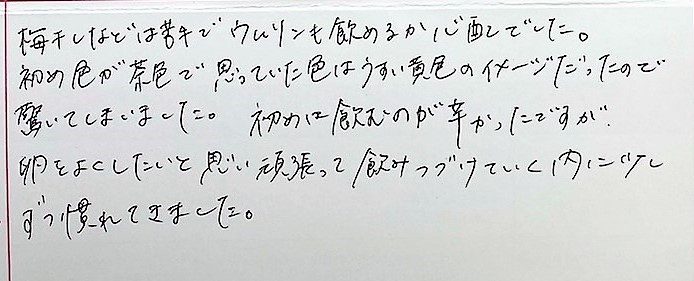 梅干しなどは苦手でウムリンも飲めるか心配でした。
初め色が茶色で思っていた色はうすい黄色のイメージだったので
驚いてしまいました。 初めは飲むのが辛かったですが
卵をよくしたいと思い頑張って飲みつづけていく内に少し
ずつ慣れてきました。